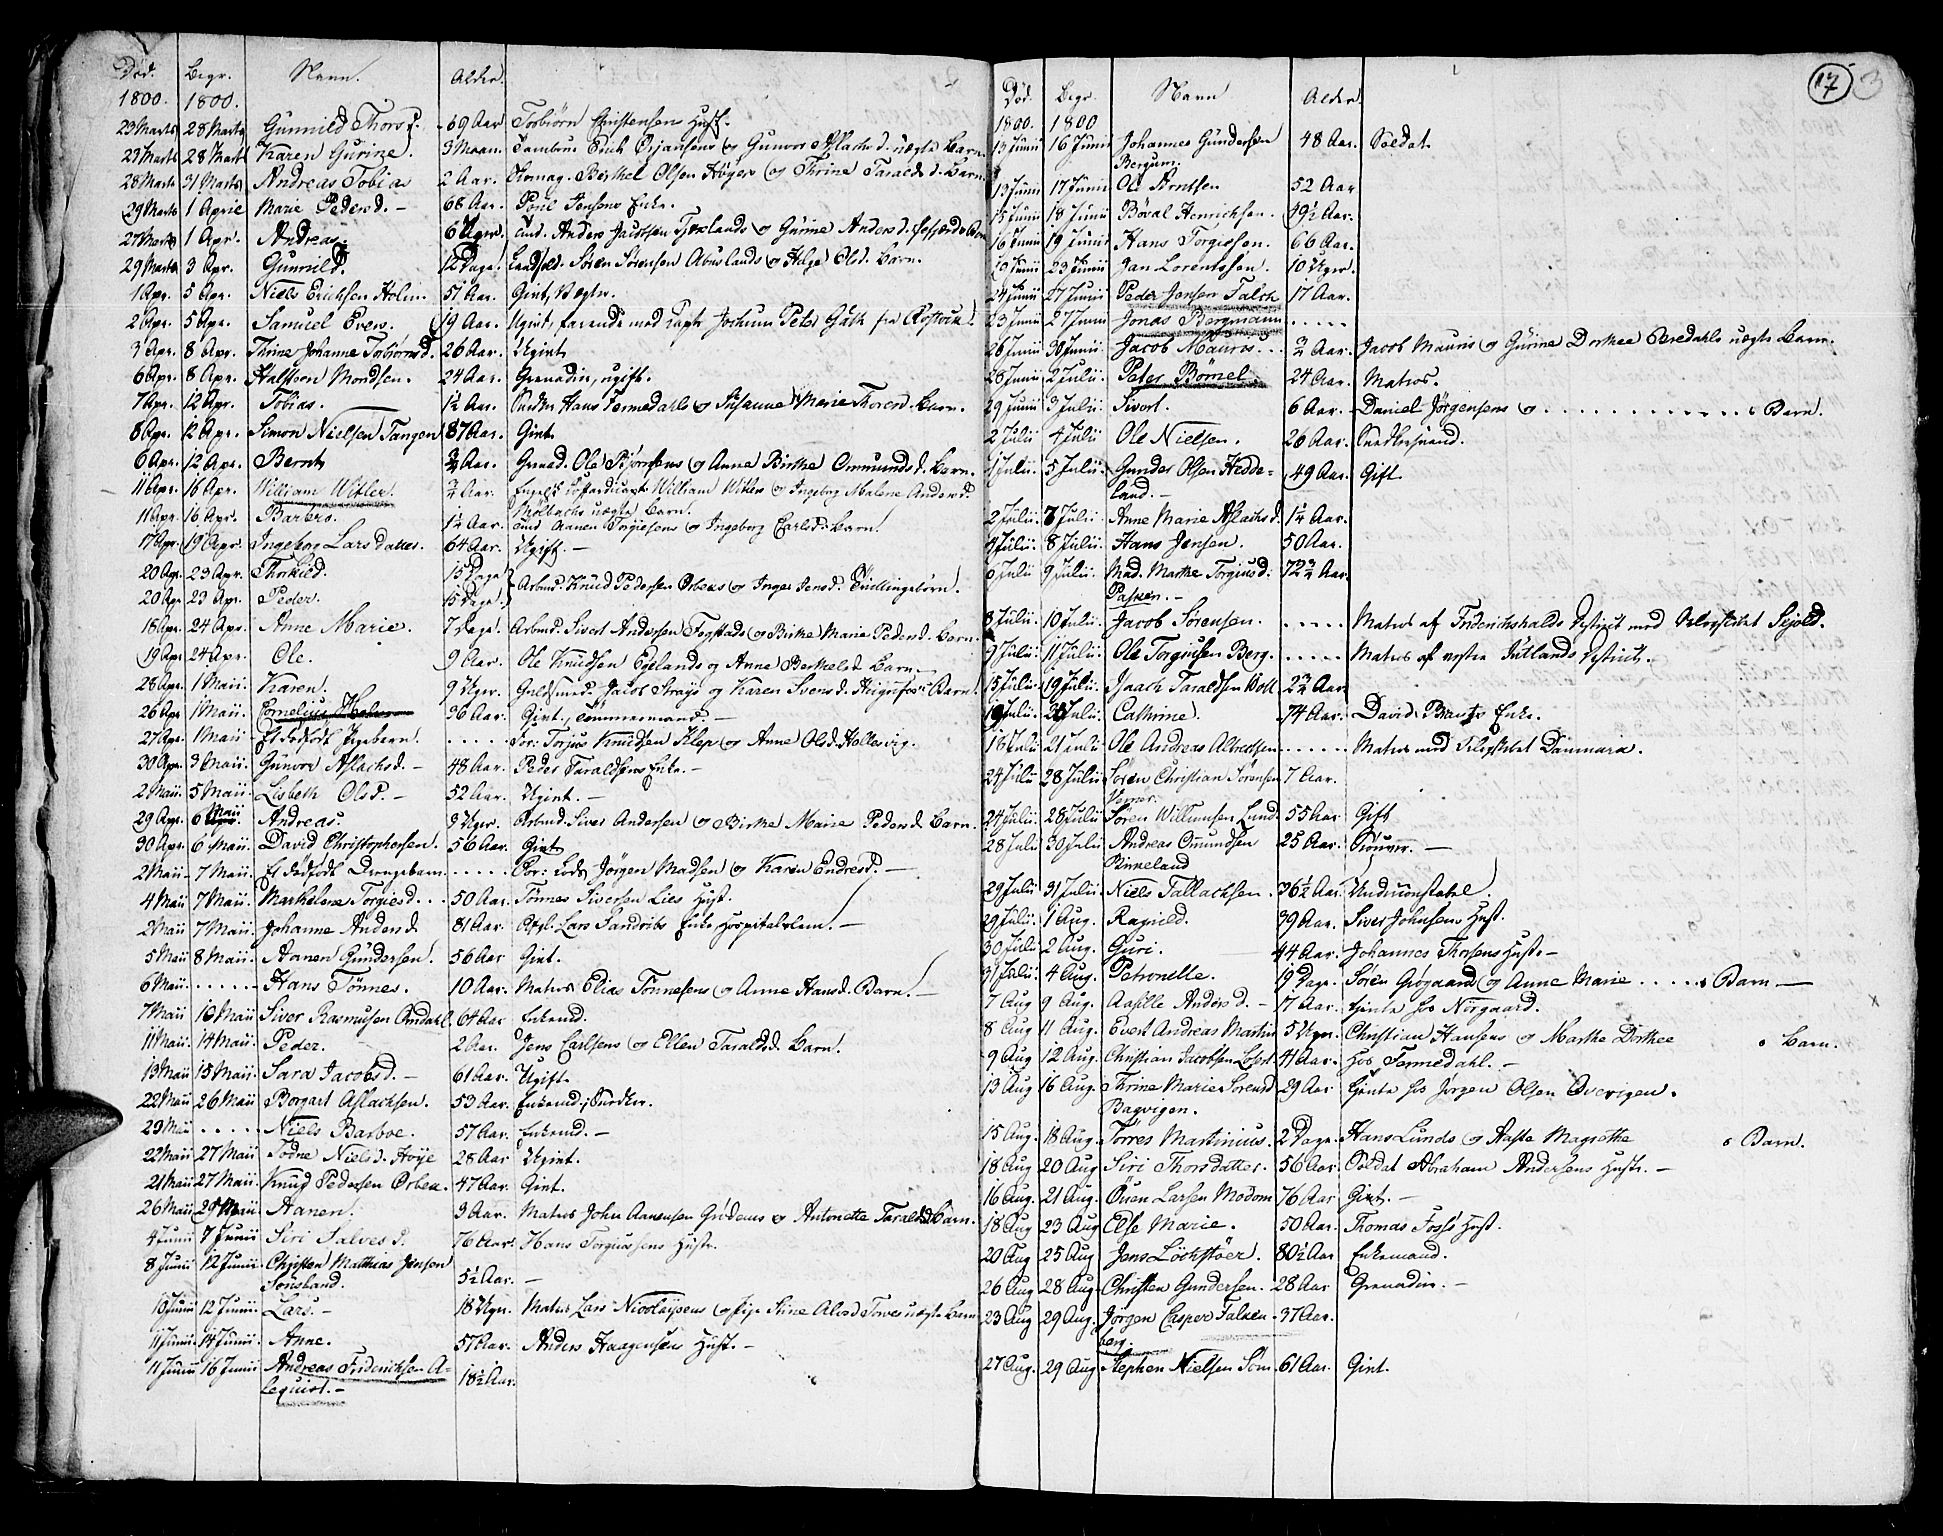 Død. Begr. Navn. Alder.
1800. 1800.
23 Marts 28 Marts Gunnild Thorsd. 69 Aar Torbiörn Christensen Hust.
23 Marts 28 Marts Karen Gurine. 3 Maan. Tambour Erich Örjansens og Gunvor Aslachsd. uægte Barn.
28 Marts 31 Marts Andreas Tobias 2 Aar. Berthel Olsen Höyers og Thrine Taraldsd. Barn.
29 Marts 1 April Marie Pedersd. 68 Aar. Poul Jensens Enke.
27 Marts 1 Apr. Andreas. 6 Uger. Anders Jacobsen Tjoslands og Gurine Andersd.
29 Marts 3 Apr. Gunnild. 12 Dage. Sören Sörensen Abuslands og Helge Olsd. Barn.
1 Apr. 5 Apr. Niels Erichsen Holm. 51 Aar. Gift, Vægter.
2 Apr. 5 Apr. Samuel Evers. 19 Aar. Ugift, farende med Capt. Jochum Peter Guth fra Rostock.
3 Apr. 8 Apr. Thrine Johanne Torbiörnsd. 26 Aar. Ugift
6 Apr. 8 Apr. Halfteen Mondsen. 24 Aar. Grenader, ugift.
7 Apr. 12 Apr. Tobias. 1½ Aar. Snedker Hans Femmedahls og Susanne Marie Thoresd. Barn.
8 Apr. 12 Apr. Simon Nielsen Tangen 87 Aar. Gift
6 Apr. 12 Apr. Bernt ¾ Aar. Grenad. Ole Biörnsens og Anne Birthe Ommundsd. Barn.
11 Apr. 16 Apr. William Witler. ¾ Aar. William Witlers og Ingeborg Malene Andersd.
Mölbachs uægte Barn.
11 Apr. 16 Apr. Barbro. 1¼ Aar. Aanen Torgiesens og Ingeborg Carlsd. Barn.
17 Apr. 19 Apr. Ingeborg Lars datter. 64 Aar. Ugift.
20 Apr. 23 Apr. Thorkild. 15 Dage
20 Apr. 23 Apr. Peder. 15 Dage. Arbmd. Knud Pedersen Örbeks og Inger Jensd. Tvillingebörn.
18 Apr. 24 Apr. Anne Marie. 7 Dage. Arbmd. Sivert Andersen Fogstads og Birthe Marie Pedersd. Barn.
19 Apr. 24 Apr. Ole. 9 Aar. Ole Knudsen Egelands og Anne Berthelsd. Barn.
28 Apr. 1 Maii. Karen. 9 Uger. Guldsmed. Jacob Strays og Karen Svensd. Barn.
26 Apr. 1 Maii. Cornelius 36 Aar. Gift, Tömmermand.
27 Apr. 1 Maii Et dödfödt Pigebarn. ..... For: Torjus Knudsen Klep og Anne Olsd. Hollesvig.
30 Apr. 3 Maii. Gunvor Aslachsd. 48 Aar. Peder Taraldsens Enke.
2 Maii. 5 Maii. Lisbeth Olsd. 52 Aar. Ugift.
29 Apr. 6 Maii Andreas. 9 Uger. Arbmd. Siver Andersen og Birthe Marie Pedersd. Barn.
30 Apr. 6 Maii. David Christophersen. 56 Aar. Gift
2 Maii 7 Maii. Et dödfödt Drengebarn ..... For: Lods Jörgen Madsen og Karen Endresd.
4 Maii 7 Maii. Marthelene Torgiesd. 50 Aar. Tönnes Siversen Lies Hust.
2 Maii 7 Maii. Johanne Andersd. 81 Aar. Lars Sandribs Enke Hospitalslem.
5 Maii 8 Maii. Aanen Gundersen. 56 Aar Gift.
6 Maii ..... Hans Tönnes. 10 Aar. Matros Elias Tönnesens og Anne Hansd. Barn.
7 Maii 10 Maii Siver Rasmusen Omdahl. 64 Aar Enkemd.
11 Maii. 14 Maii. Peder. 2 Aar. Jens Carlsens og Ellen Taraldsd. Barn.
13 Maii 15 Maii. Sara Jacobsd. 61 Aar. Ugift.
22 Maii 26 Maii Borgart Aslachsen. 53 Aar. Enkemd. Snedker.
23 Maii ..... Niels Barboe. 57 Aar. Enkemd.
22 Maii 27 Maii Todne Nielsd. Höije 28 Aar Ugift.
21 Maii 27 Maii. Knud Pedersen Örbek. 47 Aar. Gift.
26 Maii 29 Maii. Aanen. 3 Aar. Matros John Aanensen Grödems og Antonette Taraldsd. Barn.
4 Junii 7 Junii Siri Salvesd. 76 Aar. Hans Torgiussens Hustr.
8 Junii 12 Junii. Christen Matthias Jensen
Sönsland. 5½ Aar.
10 Junii 12 Junii. Lars. 18 Uger. Matros Lars Nicolaisens og Stine Alesd. Torves uægte Barn
11 Junii. 14 Junii. Anne. 57 Aar. Anders Haagensens Hust.
11 Junii 16 Junii. Andreas Friderichsen A-
lequist. 18½ Aar.
17
3
Död. Begr. Navn Alder
1800. 1800
13 Junii 16 Junii Johannes Gundersen 48 Aar. Soldat
Bergum.
13 Junii 17 Junii Ole Arntsen 52 Aar
15 Junii 18 Junii Böval Henrichsen. 49½ Aar.
16 Junii 19 Junii Hans Torgissen. 66 Aar.
19 Junii 23 Junii Jan Lorentssen. 10 Uger.
24 Junii 27 Junii Peder Jensen Falch 17 Aar.
23 Junii 27 Junii Jonas Bergmann .....
26 Junii 30 Junii. Jacob Mauris. ¾ Aar. Jacob Mauris og Gurine Dorthea Bredahls uægte Barn.
28 Junii 2 Julii. Peter Bömel. 24 Aar. Matros.
29 Junii 3 Julii. Sivert. 6 Aar. Daniel Jörgensens og ..... Barn.
2 Julii 4 Julii Ole Nielsen. 26 Aar. Snedkersvend.
1 Julii. 5 Julii. Gunder Olsen Hedde-
land. 49 Aar. Gift
2 Julii. 7 Julii. Anne Marie Aslachsd. 1¼ Aar.
4 Julii. 8 Julii. Hans Jensen. 50 Aar.
6 Julii 9 Julii. Mad. Marthe Torgiusd. 72¾ Aar.
Paschen.
8 Julii. 10 Julii. Jacob Sörensen. ..... Matros af Friderichshalds District med Blockskibet Seiold.
9 Julii. 11 Julii. Ole Torgiussen Berg. ..... Matros af nörre Jutlands District.
15 Julii. 19 Julii. Isaach Taraldsen Boll 2¾ Aar
19 Julii. 21 Julii. Cathrine. 74 Aar. David Brants Enke.
18 Julii 21 Julii. Ole Andreas Albretsen ..... Matros med Blokskibet Danmark.
24 Julii 28 Julii Sören Christian Sörensen 7 Aar.
Werner.
24 Julii. 28 Julii Sören Willumsen Lund. 55 Aar Gift
28 Julii 30 Julii Andreas Omundsen 25 Aar.
Birkeland
29 Julii 31 Julii. Niels Tallachsen. 36½ Aar. Underconstabel.
29 Julii. 1 Aug. Ragnild. 39 Aar. Siver Johnsens Hust.
30 Julii 2 Aug. Guri. 44 Aar. Johannes Thorsens Hustr.
31 Julii. 4 Aug. Petronelle. 19 Dage. Sören Grögaards og Anne Marie ..... Barn
7 Aug 9 Aug. Aasille Andersd. 17 Aar. tjente hos Nörgaard.
8 Aug 11 Aug. Evert Andreas Martin 5 Uger. Christian Hansens og Marthe Dorthee Barn.
9 Aug 12 Aug. Christian Jacobsen 41 Aar. hos Femmedahl.
13 Aug 16 Aug. Thrine Marie Sorensd. 29 Aar tjente hos Jörgen Olsen Overigen.
Bagvigen.
15 Aug. 18 Aug. Torres Martinius. 2 Dage. Hans Lunds og Aaste Magrethe Barn.
18 Aug 20 Aug Siri Thorsdatter. 56 Aar. Soldat Abraham Andersens Hustr.
16 Aug. 21 Aug. Ouen Larsen Modom 76 Aar Gift.
18 Aug 23 Aug Else Marie. 50 Aar. Thomas Foss Hust.
20 Aug 25 Aug Jens Löchstöer. 80½ Aar Enkemand.
26 Aug 28 Aug. Christen Gundersen. 28 Aar Grenader.
23 Aug 29 Aug. Jörgen Casper Falken- 37 Aar.
berg.
27 Aug. 29 Aug Stephen Nielsen Som 61 Aar. Gift.